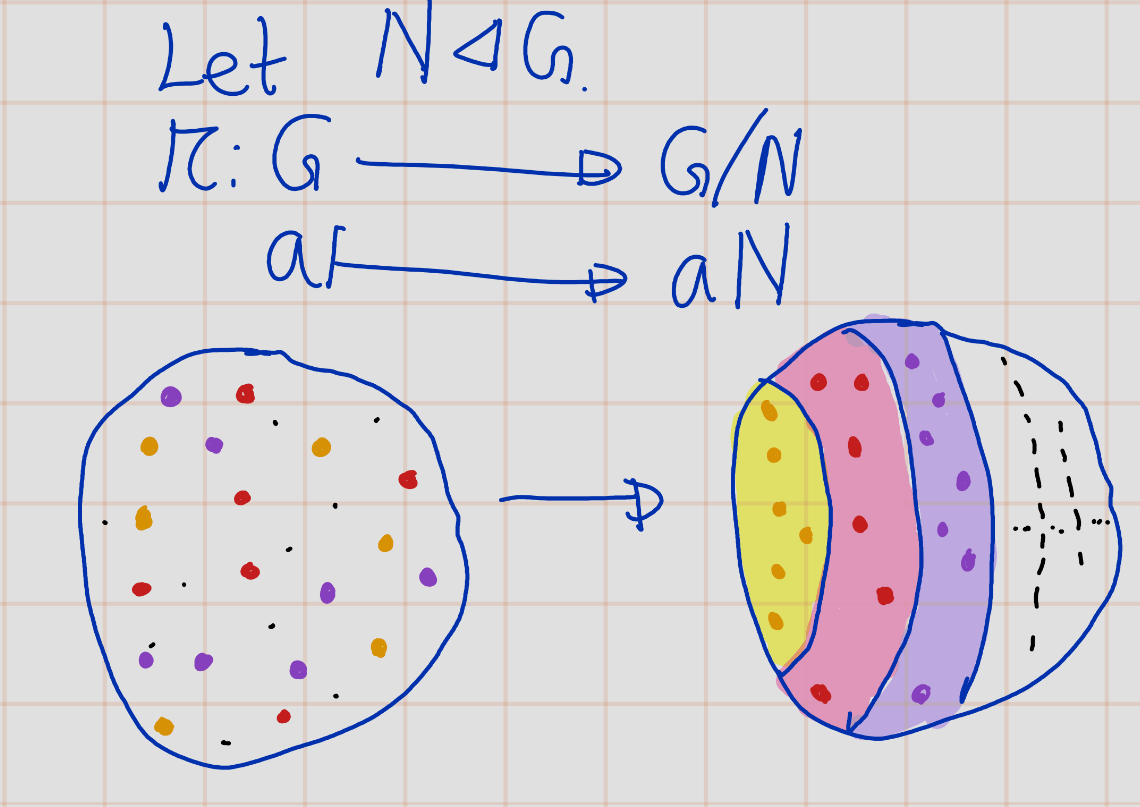 Let N ⊲ G.
π: G → G/N
a ↦ aN